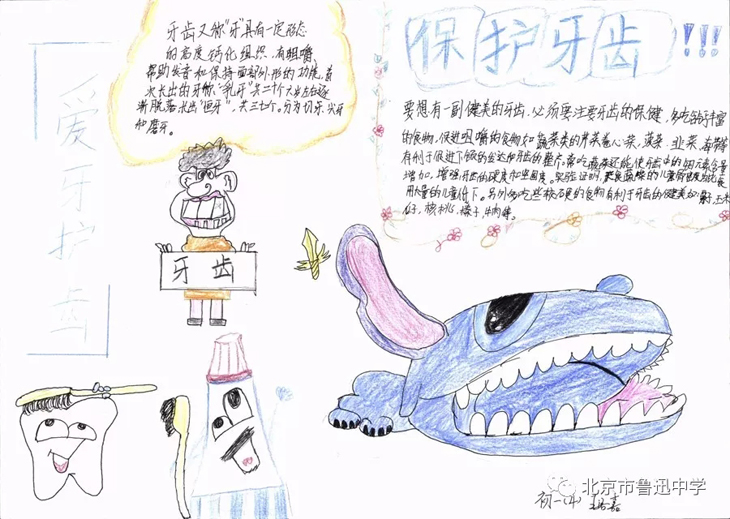 爱牙护齿
牙齿又称“牙”具有一定形态
的高度钙化组织,有咀嚼,
帮助发音和保持面部外形的功能,首
次长出的牙称“乳牙”共二十个六岁左右逐
渐脱落长出“恒牙”,共三十二个。分为切牙,尖牙
和磨牙。
牙齿
保护牙齿!!!
要想有一副健美的牙齿,必须要注意牙齿的保健,多吃
的食物,促进咀嚼的食物如蔬菜类的芹菜卷心菜,菠菜、韭菜、海带等
有利于促进下颌的发达和牙齿的整齐。常吃蔬菜还能使牙齿中的钼元素含量
增加,增强牙齿的硬度和坚固度。实验证明,
用大量的儿童低下。另外多吃些较硬的食物有利于牙齿的健美如
核桃,
初一(4)
北京市鲁迅中学